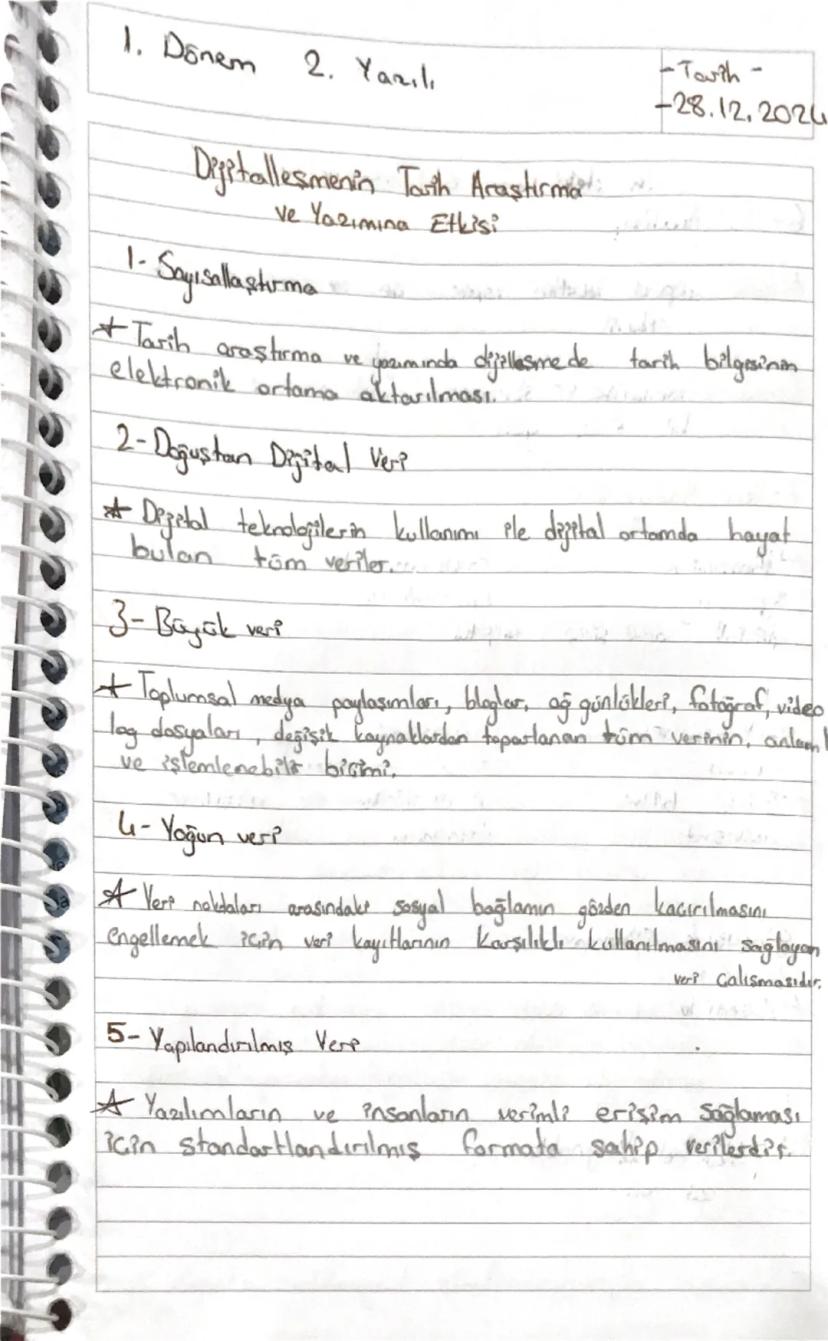 1. Dönem 2. Yazılı
- Tarih -
- 28.12.2024
Dijitalleşmenin Tarih Araştırma
ve Yazımına Etkisi
1- Sayısallaştırma
★ Tarih araştırma ve yazımında dijelleşmede tarih bilgisinin
elektronik ortama aktarılması.
2- Doğuştan Dijital Veri
★ Dijital teknolojilerin kullanımı ile dijital ortamda hayat
bulan tüm veriler.
3- Büyük veri
★ Toplumsal medya paylaşımları, bloglar, ağ günlükleri, fotoğraf, video
log dosyaları, değişik kaynaklardan toparlanan tüm verinin, anlamlı
ve işlemlenebilir biçimi.
4- Yoğun veri
★ Veri noktaları arasındaki sosyal bağlamın gözden kaçırılmasını
engellemek için veri kayıtlarının karşılıklı kullanılmasını sağlayan
veri çalışmasıdır.
5- Yapılandırılmış Veri
★ Yazılımların ve insanların verimli erişim sağlaması
için standartlandırılmış formata sahip verilerdir.